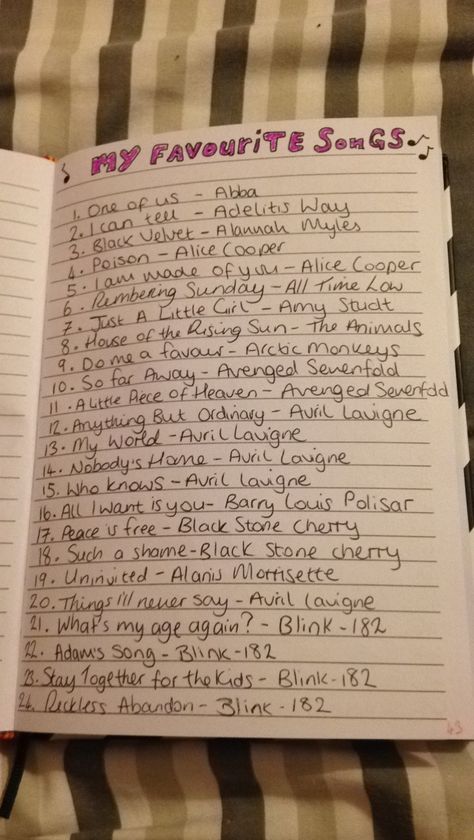 MY FAVOURITE SONGS
1. One of us - Abba
2. I can tell - Adelitis Way
3. Black Velvet - Alannah Myles
4. Poison - Alice Cooper
5. I am made of you - Alice Cooper
6. Rembering Sunday - All Time Low
7. Just A Little Girl - Amy Studt
8. House of the Rising Sun - The Animals
9. Do me a favour - Arctic Monkeys
10. So far Away - Avenged Sevenfold
11. A Little Piece of Heaven - Avenged Sevenfold
12. Anything But Ordinary - Avril Lavigne
13. My World - Avril Lavigne
14. Nobody's Home - Avril Lavigne
15. Who knows - Avril lavigne
16. All I want is you - Barry Louis Polisar
17. Peace is free - Black Stone cherry
18. Such a shame - Black Stone cherry
19. Uninvited - Alanis Morrisette
20. Things i'll never say - Avril lavigne
21. What's my age again? - Blink-182
22. Adam's Song - Blink-182
23. Stay Together for the Kids - Blink-182
24. Reckless Abandon - Blink-182
43